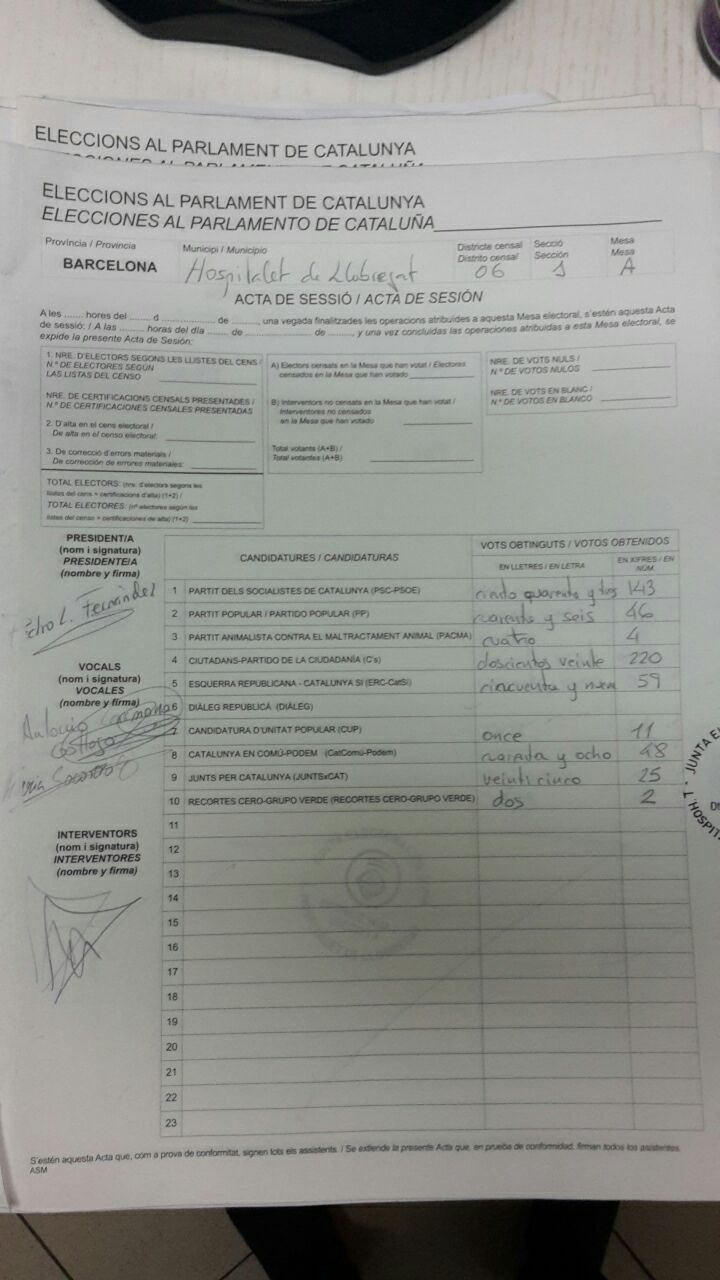 ELECCIONS AL PARLAMENT DE CATALUNYA
ELECCIONS AL PARLAMENT DE CATALUNYA
ELECCIONES AL PARLAMENTO DE CATALUÑA
Província / Provincia
BARCELONA
Municipi / Municipio
Hospitalet de Llobregat
Districte censal
Distrito censal
06
Secció
Sección
1
Mesa
Mesa
A
ACTA DE SESSIÓ / ACTA DE SESIÓN
A les ....... hores del ....... d .................. de ........, una vegada finalitzades les operacions atribuïdes a aquesta Mesa electoral, s'estén aquesta Acta
de sessió: / A las ........ horas del día ....... de .................. de ........, y una vez concluidas las operaciones atribuidas a esta Mesa electoral, se
expide la presente Acta de Sesión:
1. NRE. D'ELECTORS SEGONS LES LLISTES DEL CENS /
N.º DE ELECTORES SEGÚN
LAS LISTAS DEL CENSO
NRE. DE CERTIFICACIONS CENSALS PRESENTADES /
N.º DE CERTIFICACIONES CENSALES PRESENTADAS
2. D'alta en el cens electoral /
De alta en el censo electoral:
3. De correcció d'errors materials /
De corrección de errores materiales:
TOTAL ELECTORS: (nre. d'electors segons les
llistes del cens + certificacions d'alta) (1+2) /
TOTAL ELECTORES: (nº electores según las
listas del censo + certificaciones de alta) (1+2)
A) Electors censats en la Mesa que han votat / Electores
censados en la Mesa que han votado
B) Interventors no censats en la Mesa que han votat /
Interventores no censados
en la Mesa que han votado
Total votants (A+B) /
Total votantes (A+B)
NRE. DE VOTS NULS /
N.º DE VOTOS NULOS
NRE. DE VOTS EN BLANC /
N.º DE VOTOS EN BLANCO
PRESIDENT/A
(nom i signatura)
PRESIDENTE/A
(nombre y firma)
L. Fernández
VOCALS
(nom i signatura)
VOCALES
(nombre y firma)
Antonio Carmona
INTERVENTORS
(nom i signatura)
INTERVENTORES
(nombre y firma)
CANDIDATURES / CANDIDATURAS
VOTS OBTINGUTS / VOTOS OBTENIDOS
EN LLETRES / EN LETRA
EN XIFRES / EN NÚM.
1 PARTIT DELS SOCIALISTES DE CATALUNYA (PSC-PSOE) ciento quarenta y tres 143
2 PARTIT POPULAR / PARTIDO POPULAR (PP) cuarenta y seis 46
3 PARTIT ANIMALISTA CONTRA EL MALTRACTAMENT ANIMAL (PACMA) cuatro 4
4 CIUTADANS-PARTIDO DE LA CIUDADANÍA (C's) doscientos veinte 220
5 ESQUERRA REPUBLICANA - CATALUNYA SÍ (ERC-CatSí) cincuenta y nueve 59
6 DIÀLEG REPUBLICÀ (DIÀLEG)
7 CANDIDATURA D'UNITAT POPULAR (CUP) once 11
8 CATALUNYA EN COMÚ-PODEM (CatComú-Podem) cuarenta y ocho 48
9 JUNTS PER CATALUNYA (JUNTSxCAT) veinticinco 25
10 RECORTES CERO-GRUPO VERDE (RECORTES CERO-GRUPO VERDE) dos 2
11
12
13
14
15
16
17
18
19
20
21
22
23
JUNTA
L'HOSPIT
S'estén aquesta Acta que, com a prova de conformitat, signen tots els assistents. / Se extiende la presente Acta que, en prueba de conformidad, firman todos los asistentes.
ASM